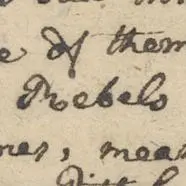 e of them
Rebels
mes, meas